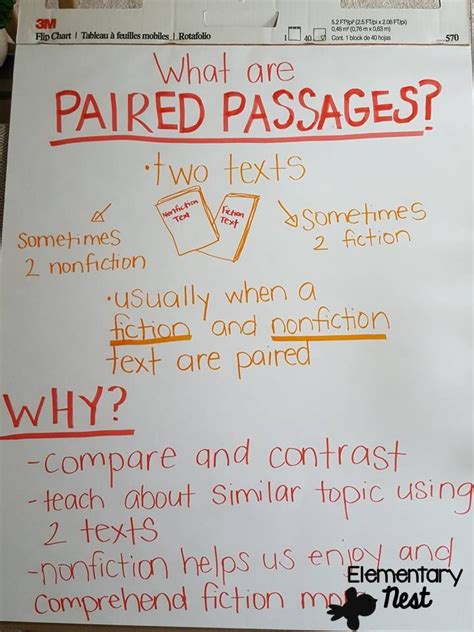 3M
Flip Chart | Tableau à feuilles mobiles | Rotafolio
5.2 FT²/pi² (2.5 FT/pi x 2.08 FT/pi)
0,48 m² (0,76 m x 0,63 m)
Cont. 1 block de 40 hojas
1
40
570
What are
PAIRED PASSAGES?
•two texts
Nonfiction
Text
Fiction
Text
Sometimes
2 nonfiction
Sometimes
2 fiction
•usually when a
fiction and nonfiction
text are paired
WHY?
-compare and contrast
-teach about similar topic using
2 texts
-nonfiction helps us enjoy and
comprehend fiction
Elementary
Nest